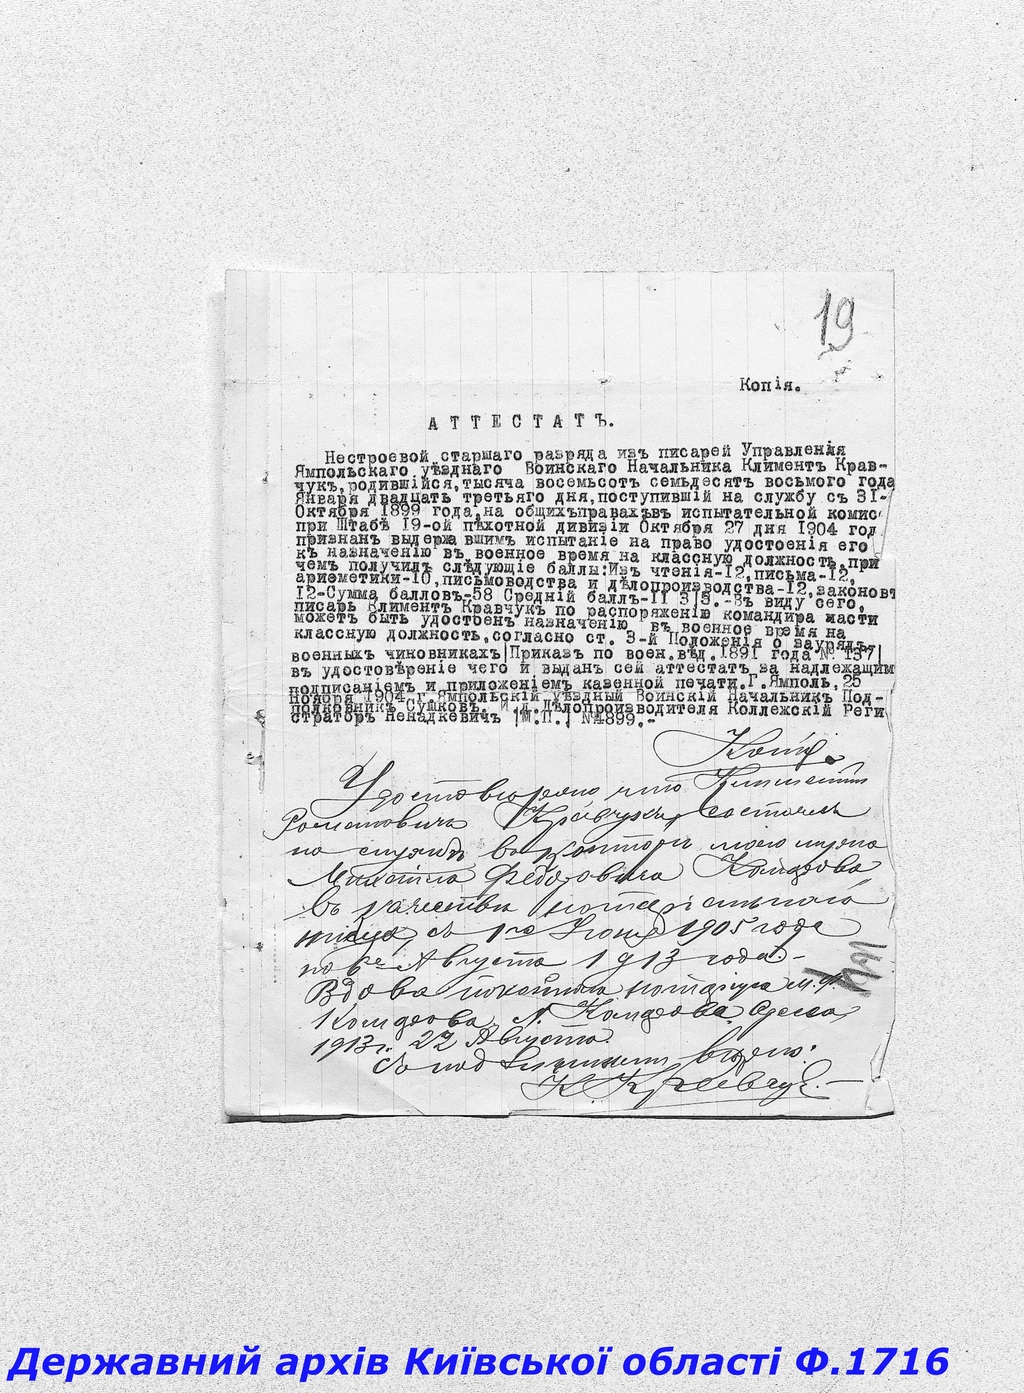 19
Копія.
АТТЕСТАТЪ.
Нестроевой старшаго разряда изъ писарей Управленія
Ямпольскаго уѣзднаго Воинскаго Начальника Климентъ Крав-
чукъ, родившійся, тысяча восемьсотъ семьдесятъ восьмого года
Января двадцать третьяго дня, поступившій на службу съ 31-
Октября 1899 года, на общихъправахъвъ испытательной комис
при Штабѣ 19-ой пѣхотной дивизіи Октября 27 дня 1904 год
признанъ выдержавшимъ испытаніе на право удостоенія его
къ назначенію въ военное время на классную должность, при
чемъ получилъ слѣдующіе баллы: Изъ чтенія-12, письма-12,
ариѳметики-10, письмоводства и дѣлопроизводства-12, законовъ
12-Сумма балловъ-58 Средній баллъ-11 3/5.-Въ виду сего,
писарь Климентъ Кравчукъ по распоряженію командира части
можетъ быть удостоенъ назначенію въ военное время на
классную должность, согласно ст. 3-й Положенія о заурядъ-
военныхъ чиновникахъ/Приказъ по воен. вѣд. 1891 года № 137/
въ удостовѣреніе чего и выданъ сей аттестатъ за надлежащимъ
подписаніемъ и приложеніемъ казенной печати. Г. Ямполь, 25
Ноября 1904 г. Ямпольскій уѣздный Воинскій Начальникъ Под-
полковникъ Сушковъ. И. д. Дѣлопроизводителя Коллежскій Реги
страторъ Ненадкевичъ /М.П./ №4899.-
Копія.
Удостовѣряю что Климентій
Романовичъ Кравчукъ, состоялъ
на службѣ въ конторѣ моего мужа
Федоровича
въ качествѣ нотаріальнаго
писца, съ 1го Іюня 1905 года
по 6е Августа 1913 года.-
Вдова покойнаго нотаріуса М. Ф.
1913 г. 22 Августа.
Съ подлиннымъ вѣрно:
К. Кравчукъ.-
Державний архів Київської області Ф.1716